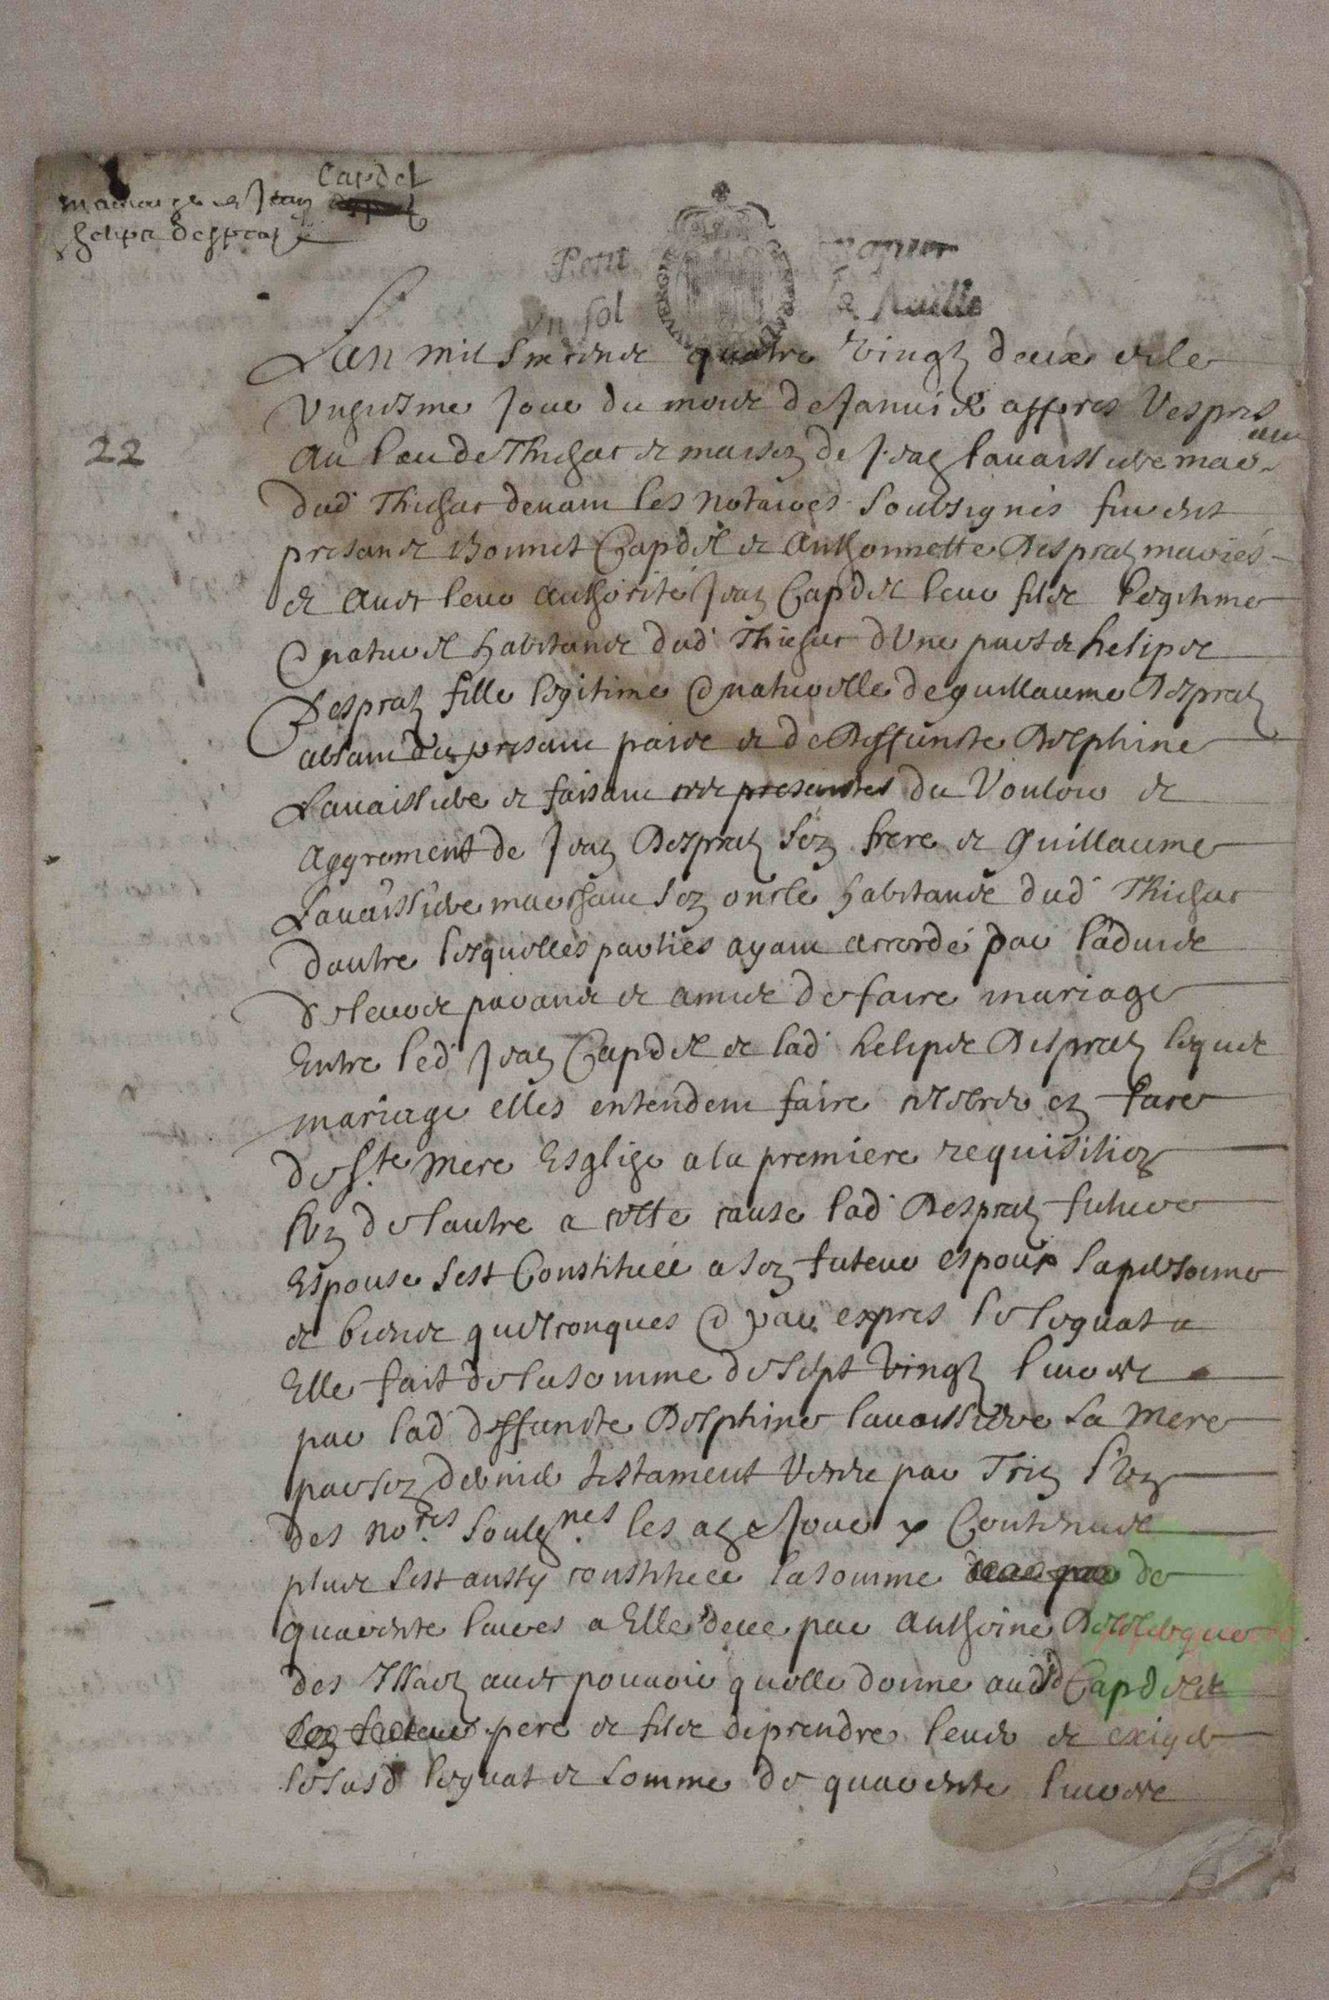 Capdel
mariage de Jean
helips Desprat
Petit papier
un sol la feuille
22
Lan mil six cens quatre vingt deux et le
vngtiesme Jour du mois de Januier appres Vespres
au lieu de Thiesac et maison de Jean Lauaissiere mar
dud Thiesac deuant les notaires soubsignes furent
presans Bonnet Capdel et Anthonnette Desprat maries
et auec leur authorité Jean Capdel leur fils legitime
& naturel habitans dud Thiesac dune part & helips
Desprat fille legitime & naturelle de guillaume Desprat
absant du presant païs et de deffuncte Delphine
Lauaissiere et faisant du Vouloir et
aggrement de Jean Desprat son frere et Guillaume
Lauaissiere marchant son oncle habitans dud Thiesac
dautre lesquelles parties ayant accordé par laduis
de leurs parans et amis de faire mariage
Entre led Jean Capdel et lad helips Desprat lequel
mariage elles entendent faire celebrer en face
de Ste mere Esglize a la premiere requisition
lun de lautre a cette cause lad Desprat future
Espouse sest Constituée a son futeur espoux sa personne
et biens quelconques & par expres le leguat a
Elle fait de la somme de sept vingt liures
par lad deffuncte Delphine lauaissiere sa mere
par son dernier testament receu par lun
des nores soubsnes les an & Jour y Contenus
plus sest aussy constituée la somme de
quarente liures a Elle deue par anthoine
des auec pouuoir quelle donne ausd Capdels
pere et fils de prendre leuer et exiger
lesusd leguat et somme de quarente liures